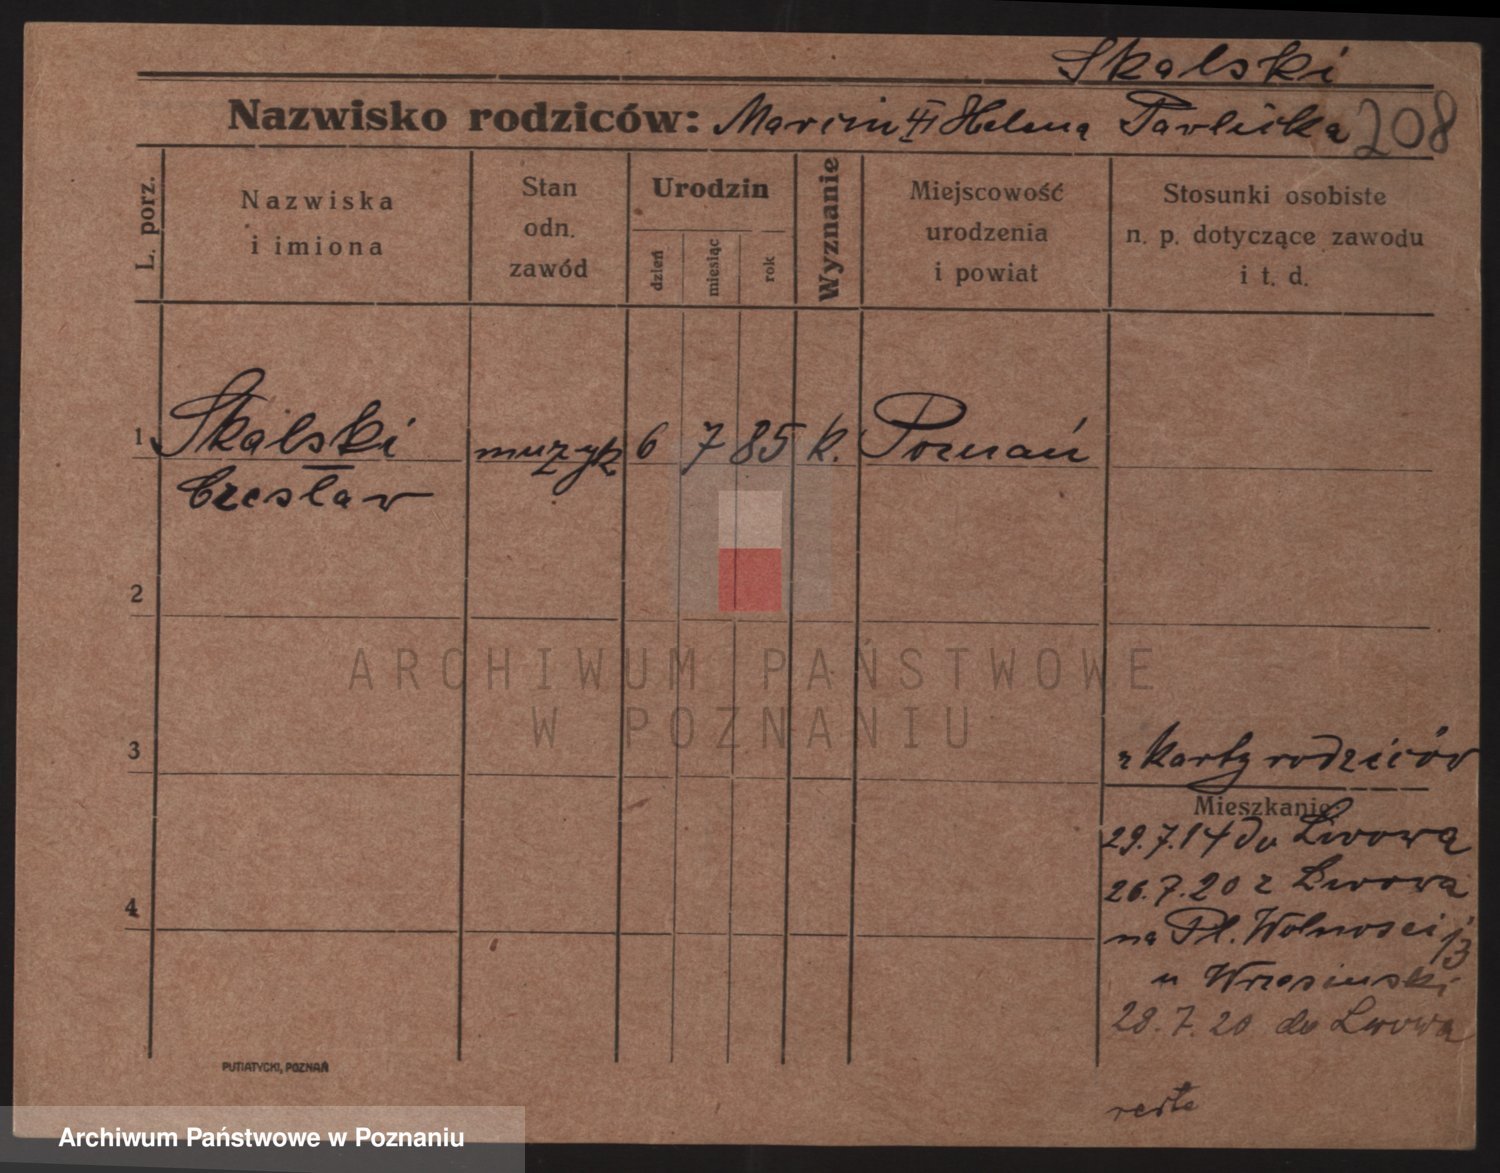 Skalski
Nazwisko rodziców: Marcin Helena Pawlicka 208
L. porz.
Nazwiska
i imiona
Stan
odn.
zawód
Urodzin
dzień
miesiąc
rok
Wyznanie
Miejscowość
urodzenia
i powiat
Stosunki osobiste
n. p. dotyczące zawodu
i t. d.
1 Skalski muzyk 6 7 85 k. Poznań
Czesław
2
ARCHIWUM PAŃSTWOWE
W POZNANIU
3
z karty rodziców
Mieszkanie
29.7.14 do Lwowa
26.7.20 z Lwowa
4
na Pl. Wolnosci
u Wrzesinski
28.7.20 do Lwowa
PUTIATYCKI, POZNAŃ
Archiwum Państwowe w Poznaniu